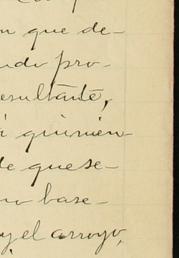 n que de-
ndo pro-
resultante,
á quinien
de quese-
no base-
y el arroyo,